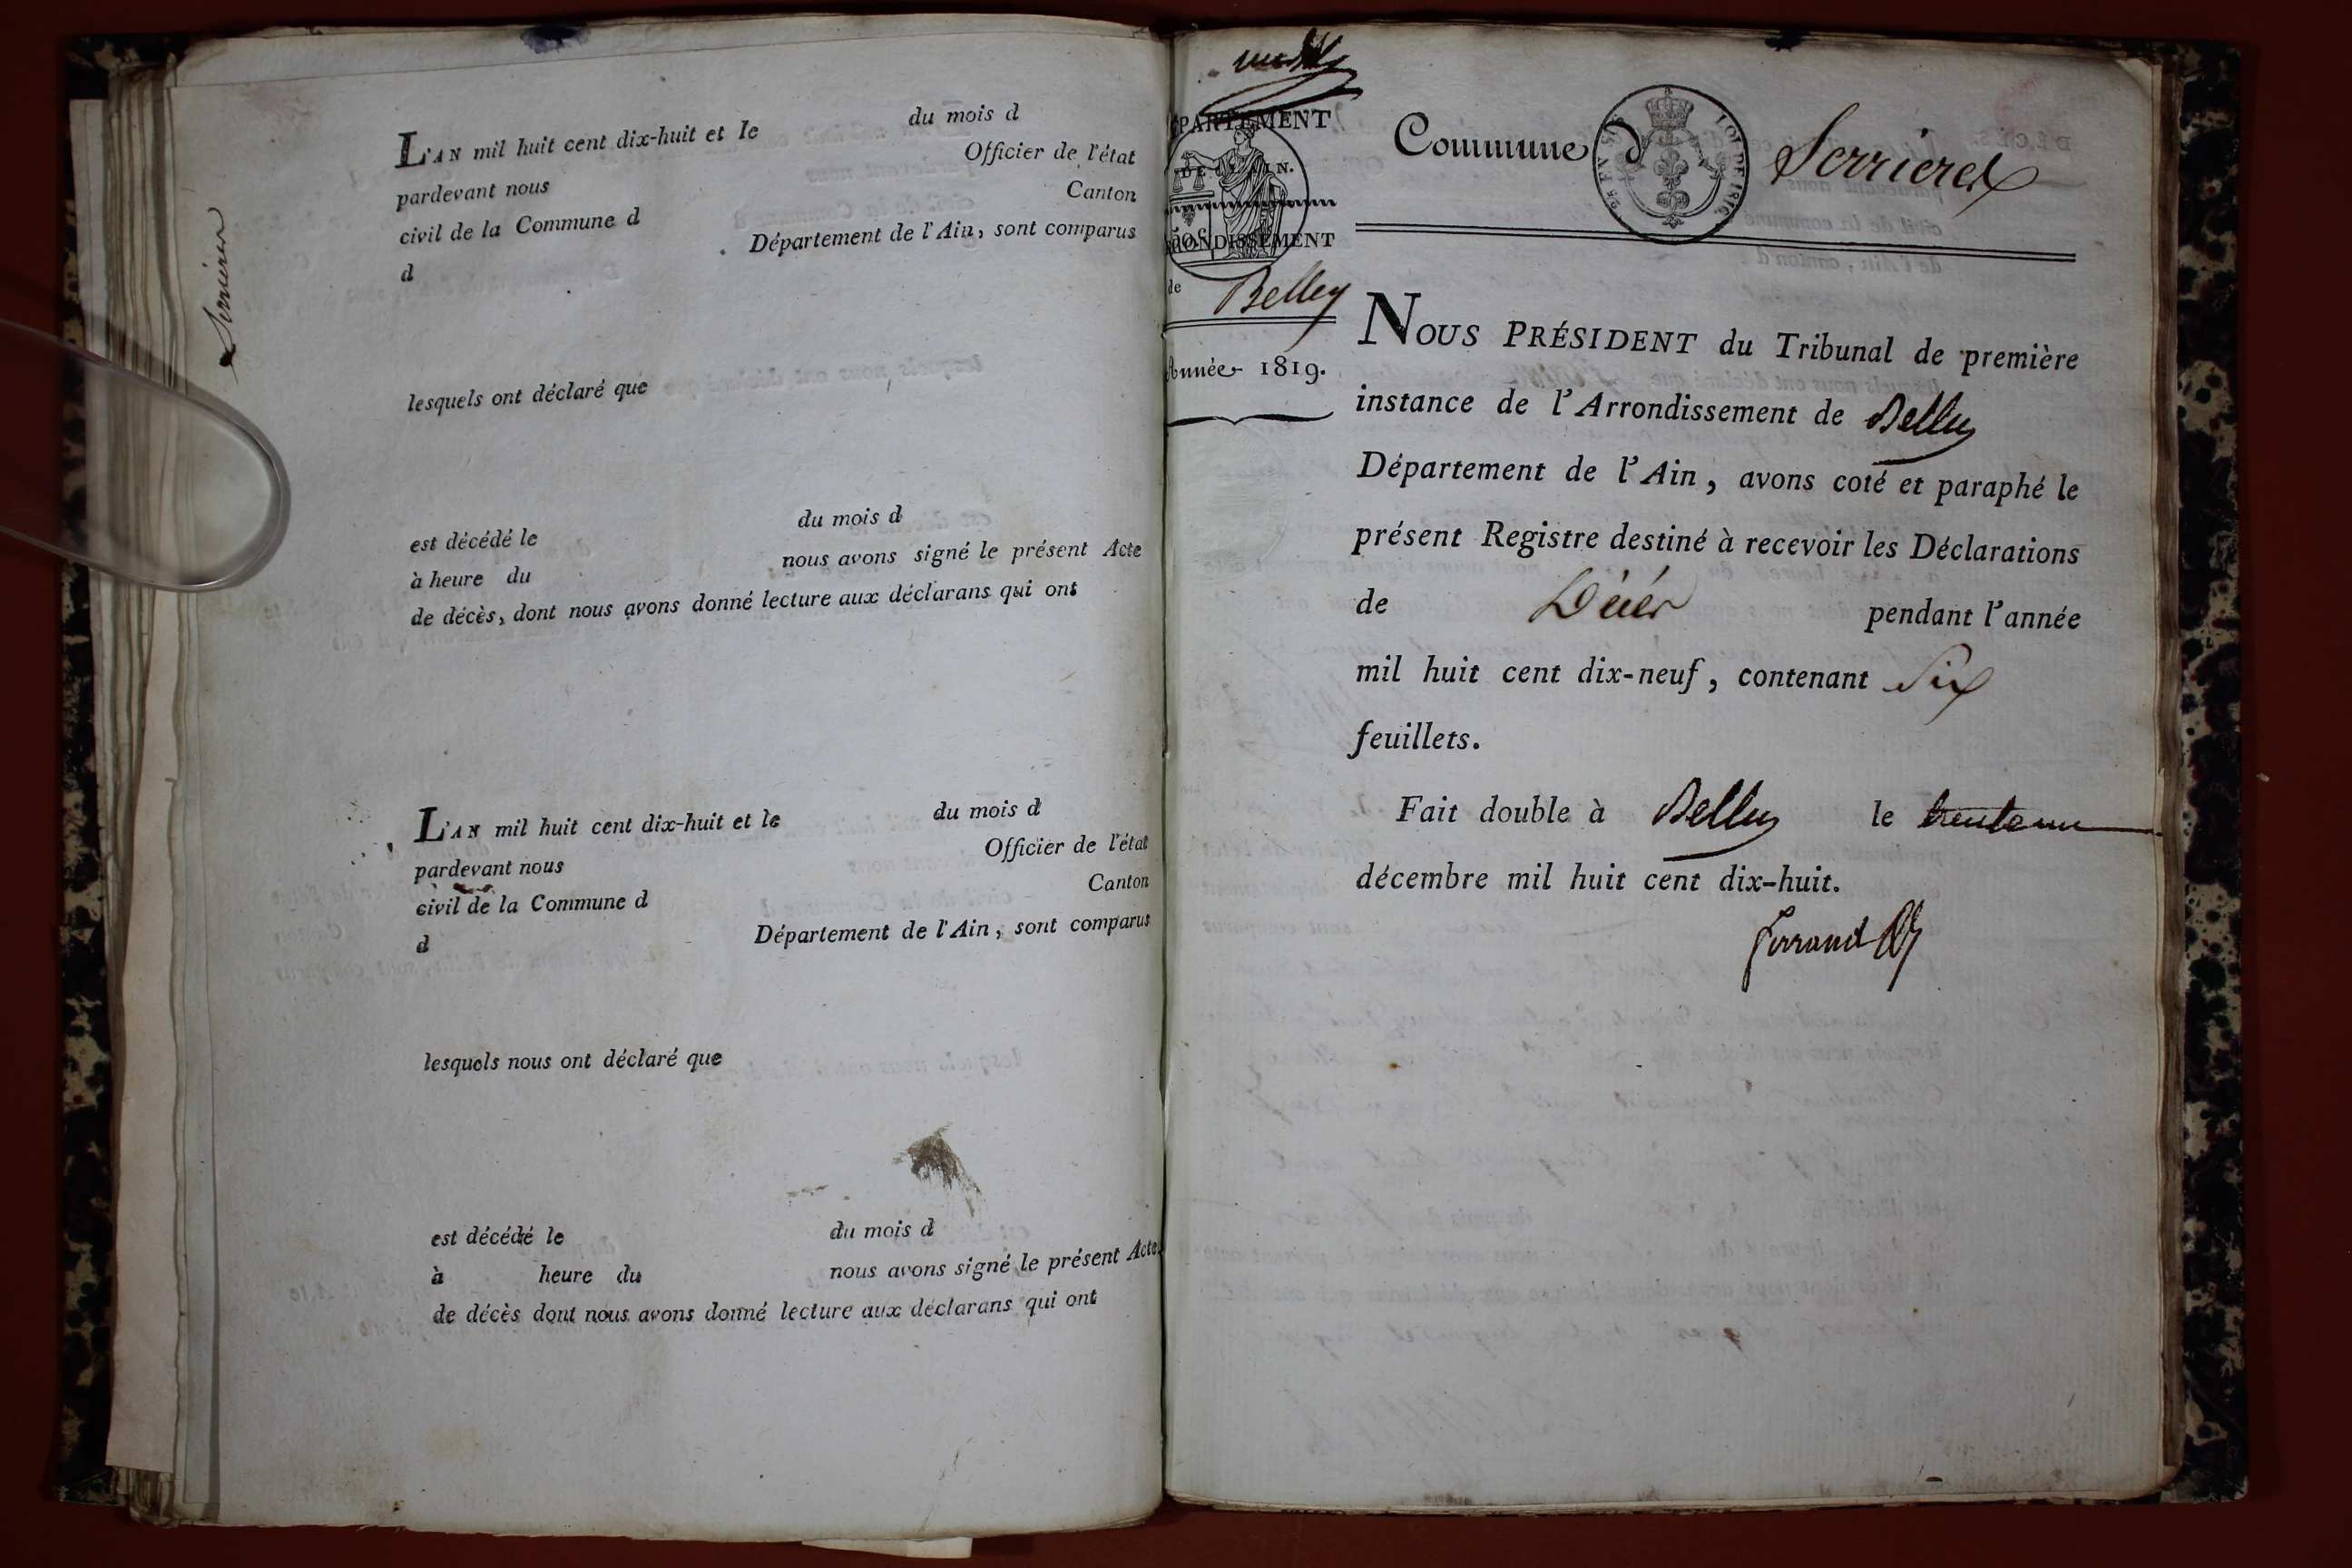 Serrieres
L'AN mil huit cent dix-huit et le du mois d
pardevant nous Officier de l'état
civil de la Commune d Canton
d Département de l'Ain, sont comparus
lesquels ont déclaré que
est décédé le du mois d
à heure du nous avons signé le présent Acte
de décès, dont nous avons donné lecture aux déclarans qui ont
L'AN mil huit cent dix-huit et le du mois d
pardevant nous Officier de l'état
civil de la Commune d Canton
d Département de l'Ain, sont comparus
lesquels nous ont déclaré que
est décédé le du mois d
à heure du nous avons signé le présent Acte
de décès dont nous avons donné lecture aux déclarans qui ont
PARTEMENT
DE L'AIN.
ONDISSEMENT
de Belley
Année 1819.
Commune d Serrieres
LOI DE 1816
NOUS PRÉSIDENT du Tribunal de première
instance de l'Arrondissement de Belley
Département de l'Ain, avons coté et paraphé le
présent Registre destiné à recevoir les Déclarations
de Décés pendant l'année
mil huit cent dix-neuf, contenant Six
feuillets.
Fait double à Belley le trente un
décembre mil huit cent dix-huit.
Ferrand